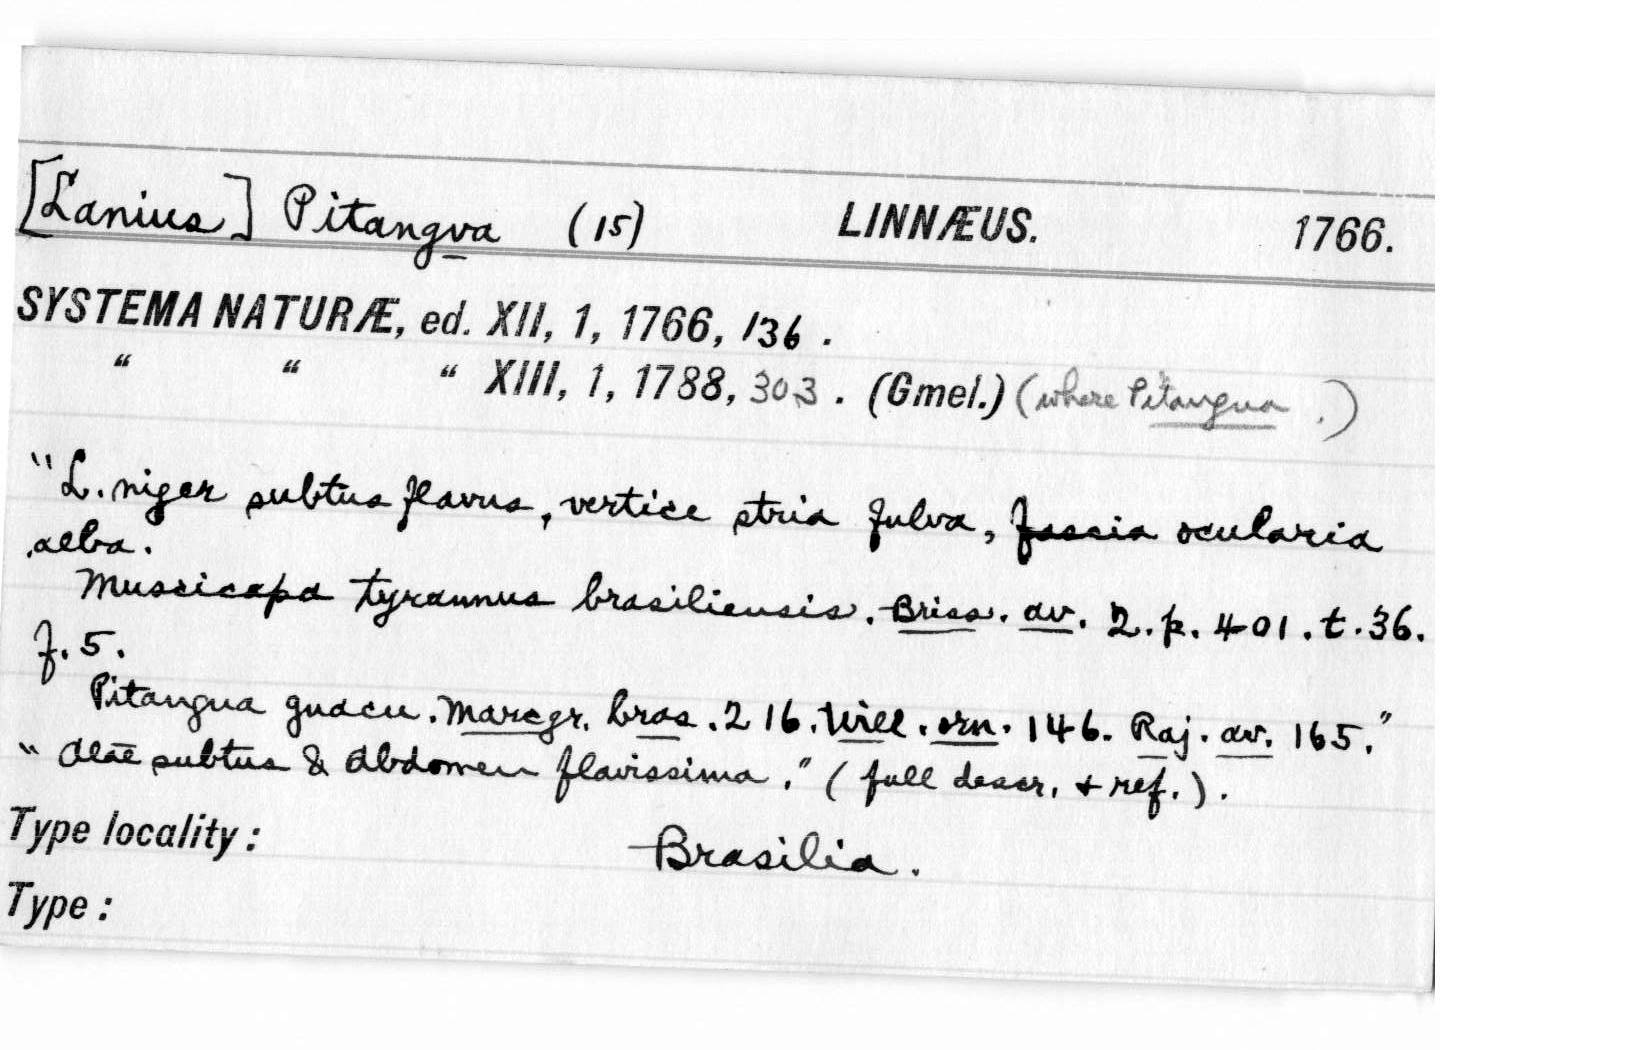 [Lanius] Pitangva (15) LINNÆUS. 1766.
SYSTEMA NATURÆ, ed. XII, 1, 1766, 136.
" " " XIII, 1, 1788, 303. (Gmel.) (where Pitangua.)
"L. niger subtus flavus, vertice stria fulva, fascia ocularia
alba.
Muscicapa tyrannus brasiliensis. Briss. av. 2. p. 401. t. 36.
f. 5.
Pitangua guacu. Marcgr. bras. 216. Will. orn. 146. Raj. av. 165."
"Alae subtus & Abdomen flavissima." (full descr. + ref.).
Type locality: Brasilia.
Type: